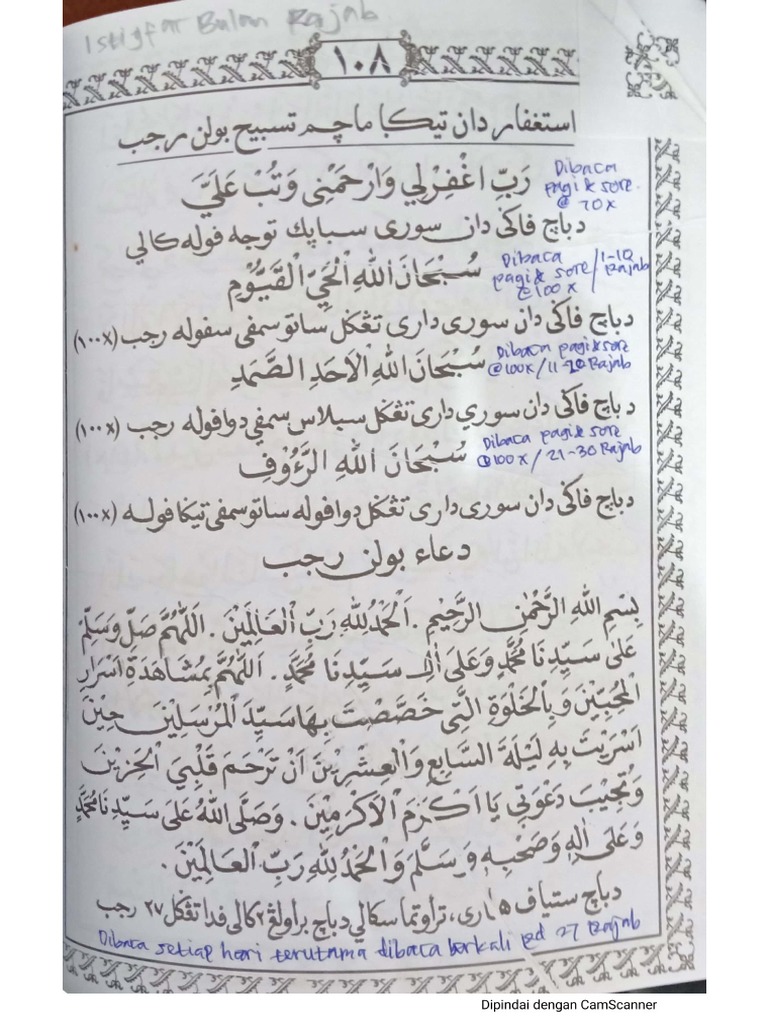 Istigfar Bulan Rajab
١٠٨
استغفار دان تيݢا ماچم تسبيح بولن رجب
رَبِّ اغْفِرْلِي وَارْحَمْنِى وَتُبْ عَلَيَّ
Dibaca
pagi & sore
@ 70x
دباچ ڤاݢى دان سورى سباپك توجه ڤوله كالي
سُبْحَانَ اللهِ الْحَيِّ الْقَيُّوْمِ
Dibaca
pagi & sore / 1-10 Rajab
@100x
دباچ ڤاݢى دان سورى دارى تڠݢل ساتو سمڤى سڤوله رجب (١٠٠x)
سُبْحَانَ اللهِ الْاَحَدِ الصَّمَدِ
Dibaca pagi & sore
@100x / 11-20 Rajab
دباچ ڤاݢى دان سوري دارى تڠݢل سبلاس سمڤي دوا ڤوله رجب (١٠٠x)
سُبْحَانَ اللهِ الرَّءُوْفِ
Dibaca pagi & sore
@100x / 21-30 Rajab
دباچ ڤاݢى دان سورى دارى تڠݢل دوا ڤوله ساتو سمڤى تيݢا ڤوله (١٠٠x)
دعاء بولن رجب
بِسْمِ اللهِ الرَّحْمٰنِ الرَّحِيْمِ . اَلْحَمْدُ لِلّٰهِ رَبِّ الْعَالَمِيْنَ . اَللّٰهُمَّ صَلِّ وَسَلِّمْ
عَلٰى سَيِّدِنَا مُحَمَّدٍ وَعَلٰى اٰلِ سَيِّدِنَا مُحَمَّدٍ . اَللّٰهُمَّ بِمُشَاهَدَةِ اَسْرَارِ
الْمُحِبِّيْنَ وَبِالْخَلْوَةِ الَّتِى خَصَّصْتَ بِهَا سَيِّدَ الْمُرْسَلِيْنَ حِيْنَ
اَسْرَيْتَ بِهِ لَيْلَةَ السَّابِعِ وَالْعِشْرِيْنَ اَنْ تَرْحَمَ قَلْبِيَ الْحَزِيْنَ
وَتُجِيْبَ دَعْوَتِي يَا اَكْرَمَ الْاَكْرَمِيْنَ . وَصَلَّى اللهُ عَلٰى سَيِّدِنَا مُحَمَّدٍ
وَعَلٰى اٰلِهٖ وَصَحْبِهٖ وَسَلَّمَ وَالْحَمْدُ لِلّٰهِ رَبِّ الْعَالَمِيْنَ .
دباچ ستياڤ هارى، تراوتما سكالي دباچ براولڠ٢ كالى ڤدا تڠݢل ٢٧ رجب
Dibaca setiap hari terutama dibaca berkali pd 27 Rajab
Dipindai dengan CamScanner